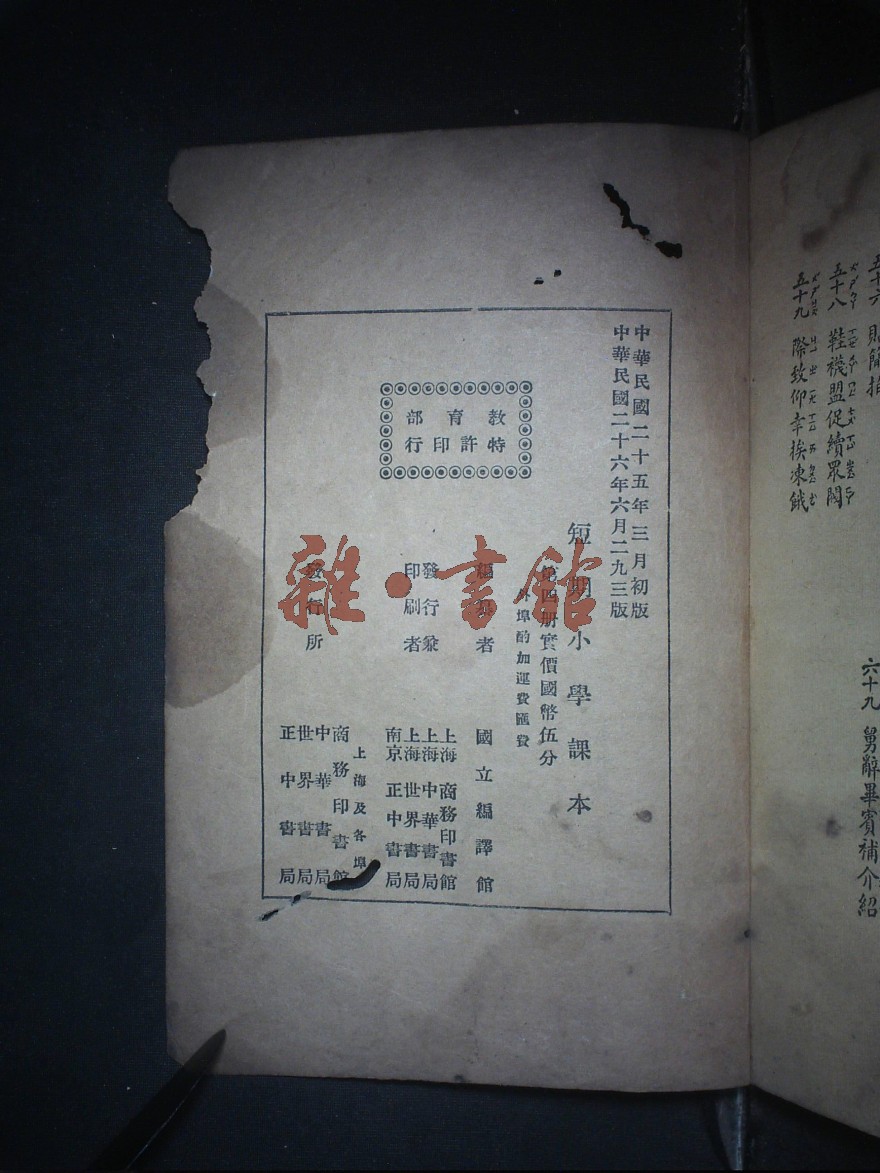 五十六
五十八 鞋襪盟促續眾閣
五十九 際致仰幸挨凍餓
六十九 舅辭畢賓補介紹
中華民國二十五年三月初版
中華民國二十六年六月二九三版
短期小學課本
第四册實價國幣伍分
外埠酌加運費匯費
教育部
特許印行
編者
國立編譯館
發行兼
印刷者
上海商務印書館
上海中華書局
上海世界書局
南京正中書局
發行所
上海及各埠
商務印書館
中華書局
世界書局
正中書局
雜·書館